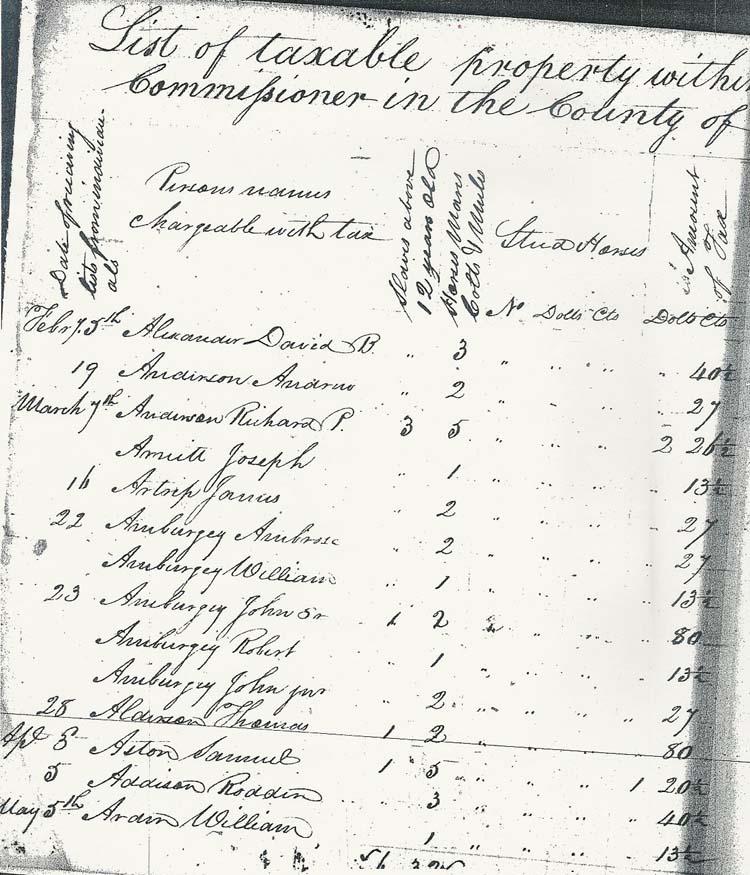 List of taxable property within
Commissioner in the County of
Date of receiving
list from individu-
als
Persons names
chargeable with tax
Slaves above
12 years old
Horses Mares
Colts & Mules
Stud Horses
No Dolls Cts
Amount
of Tax
Dolls Cts
Febry. 5th Alexander David B. " 3 " " " " 40½
19 Anderson Andrew " 2 " " " " 27
March 7th Anderson Richard P. 3 5 " " " 2 26½
Arnett Joseph " 1 " " " " 13½
16 Artrip James " 2 " " " " 27
22 Amburgey Ambrose " 2 " " " " 27
Amburgey William " 1 " " " " 13½
23 Amburgey John Sr 1 2 " " " " 80
Amburgey Robert " 1 " " " " 13½
Amburgey John jnr " 2 " " " " 27
28 Alderson Thomas 1 2 " " " " 80
Apl 5 Aston Samuel 1 5 " " " 1 20½
5 Addison Roddin " 3 " " " " 40½
May 5th Ardin William " 1 " " " " 13½